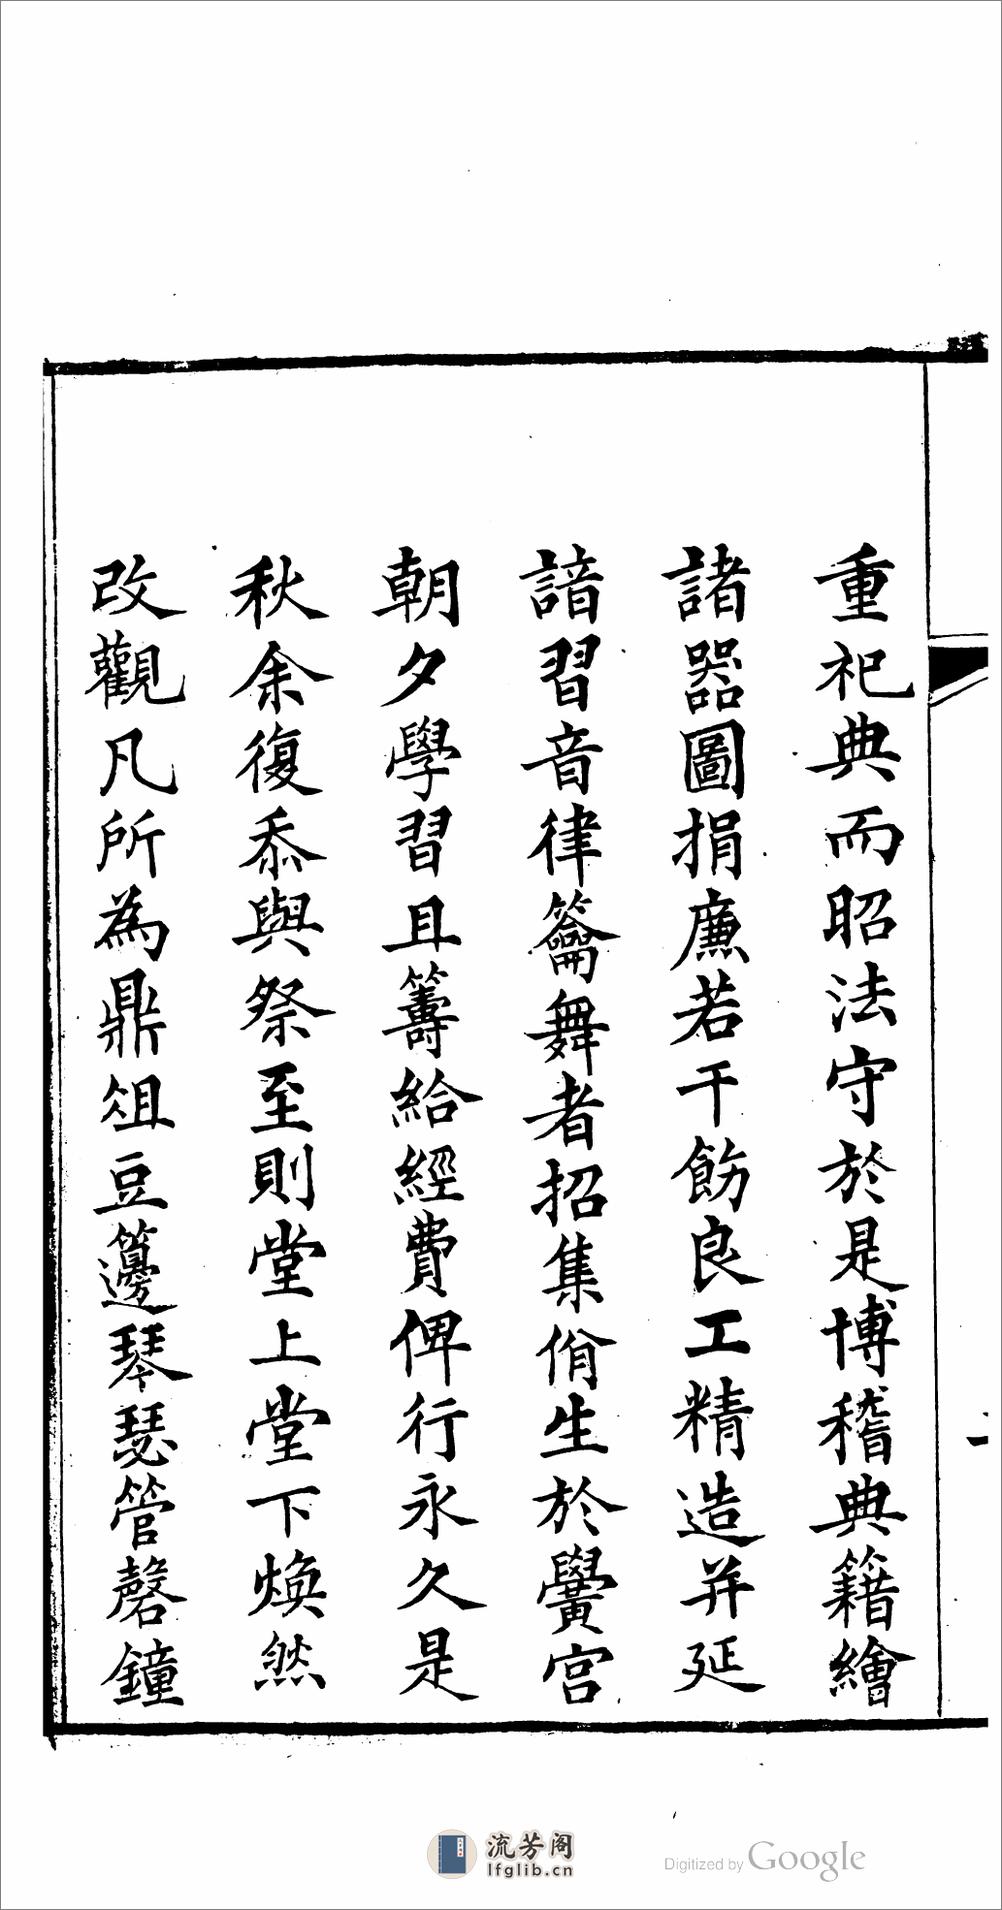 重祀典而昭法守於是博稽典籍繪
諸器圖捐廉若干飭良工精造并延
諳習音律籥舞者招集佾生於黌宮
朝夕學習且籌給經費俾行永久是
秋余復忝與祭至則堂上堂下煥然
改觀凡所為鼎俎豆籩琴瑟管磬鐘
流芳阁
lfglib.cn
Digitized by Google